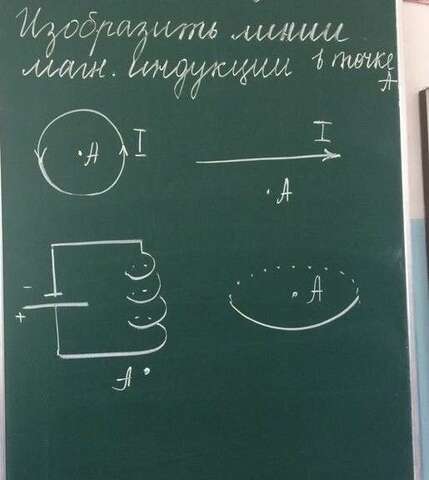 Изобразить линии
магн. индукции в точке
А
А
I
I
А
-
+
А
А